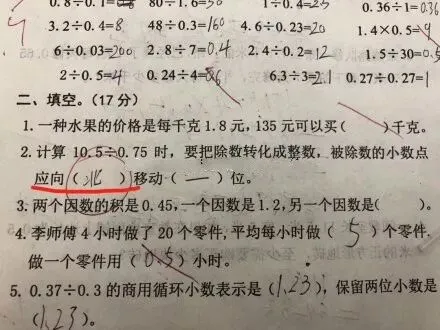 0.8÷0.1= 80÷1.6=50 1÷0.4= 0.36÷1=0.36
3.2÷0.4=8 48÷0.3=160 4.6÷0.23=20 1.4×0.5=
6÷0.03=200 2.8÷7=0.4 2.4÷0.2=12 1.5÷30=0.5
2÷0.5=4 0.24÷4= 6.3÷3=2.1 0.27÷0.27=1
二、填空。(17分)
1.一种水果的价格是每千克1.8元,135元可以买( )千克。
2.计算10.5÷0.75时,要把除数转化成整数,被除数的小数点
应向(北)移动(一)位。
3.两个因数的积是0.45,一个因数是1.2,另一个因数是( )。
4.李师傅4小时做了20个零件,平均每小时做(5)个零件.
做一个零件用( )小时。
5.0.37÷0.3的商用循环小数表示是(1.23),保留两位小数是
(1.23)。